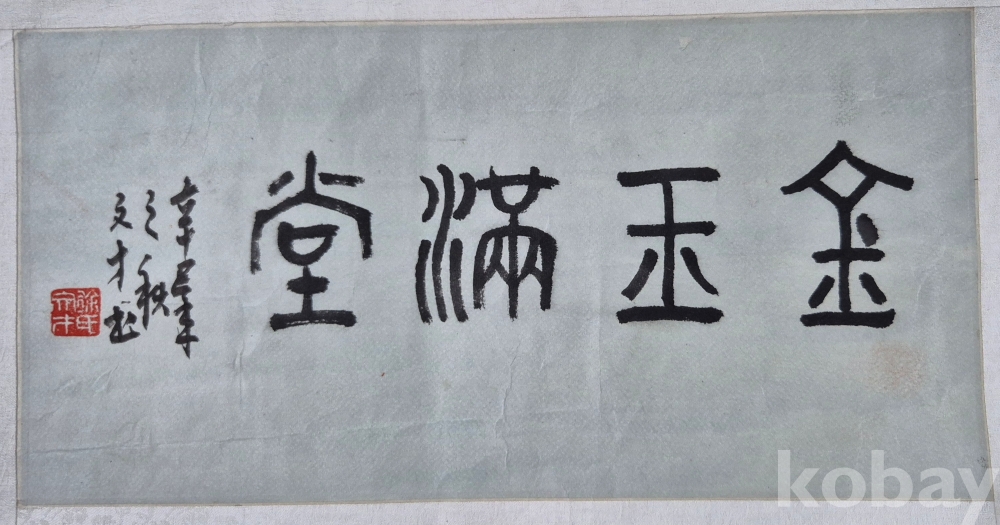 金玉滿堂
辛巳年
之秋
文才书
kobay